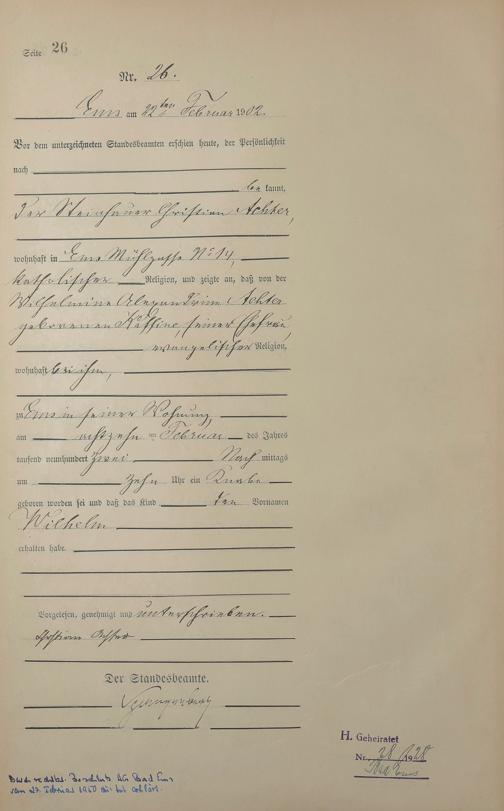 Seite 26
Nr. 26.
Ems am 22ten Februar 1902.
Vor dem unterzeichneten Standesbeamten erschien heute, der Persönlichkeit
nach
be kannt,
der Steinhauer Christian Achter,
wohnhaft in Ems Mühlgasse No 14,
katholischer Religion, und zeigte an, daß von der
Wilhelmine Alexandrine Achter
geborenen, seiner Ehefrau,
evangelischer Religion,
wohnhaft bei ihm,
zu Ems in seiner Wohnung,
am achtzehn ten Februar des Jahres
tausend neunhundert zwei Nach mittags
um zehn Uhr ein Knabe
geboren worden sei und daß das Kind den Vornamen
Wilhelm
erhalten habe.
Vorgelesen, genehmigt und unterschrieben.
Christian Achter
Der Standesbeamte.
H. Geheiratet
Nr. 28/1928
Bad Ems
Durch rechtskr. Beschluß AG Bad Ems
vom 27. Februar 1950 für tot erklärt.